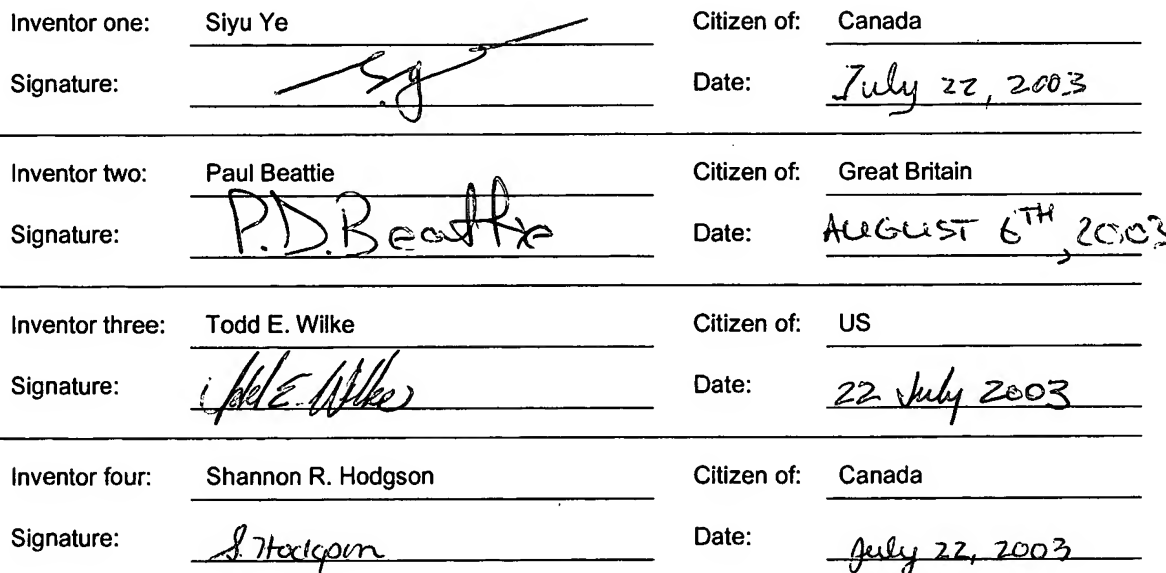 Inventor one: Siyu Ye Citizen of: Canada
Signature: S.y Date: July 22, 2003
Inventor two: Paul Beattie Citizen of: Great Britain
Signature: P.D.Beattie Date: AUGUST 6TH, 2003
Inventor three: Todd E. Wilke Citizen of: US
Signature: Todd E. Wilke Date: 22 July 2003
Inventor four: Shannon R. Hodgson Citizen of: Canada
Signature: S. Hodgson Date: July 22, 2003